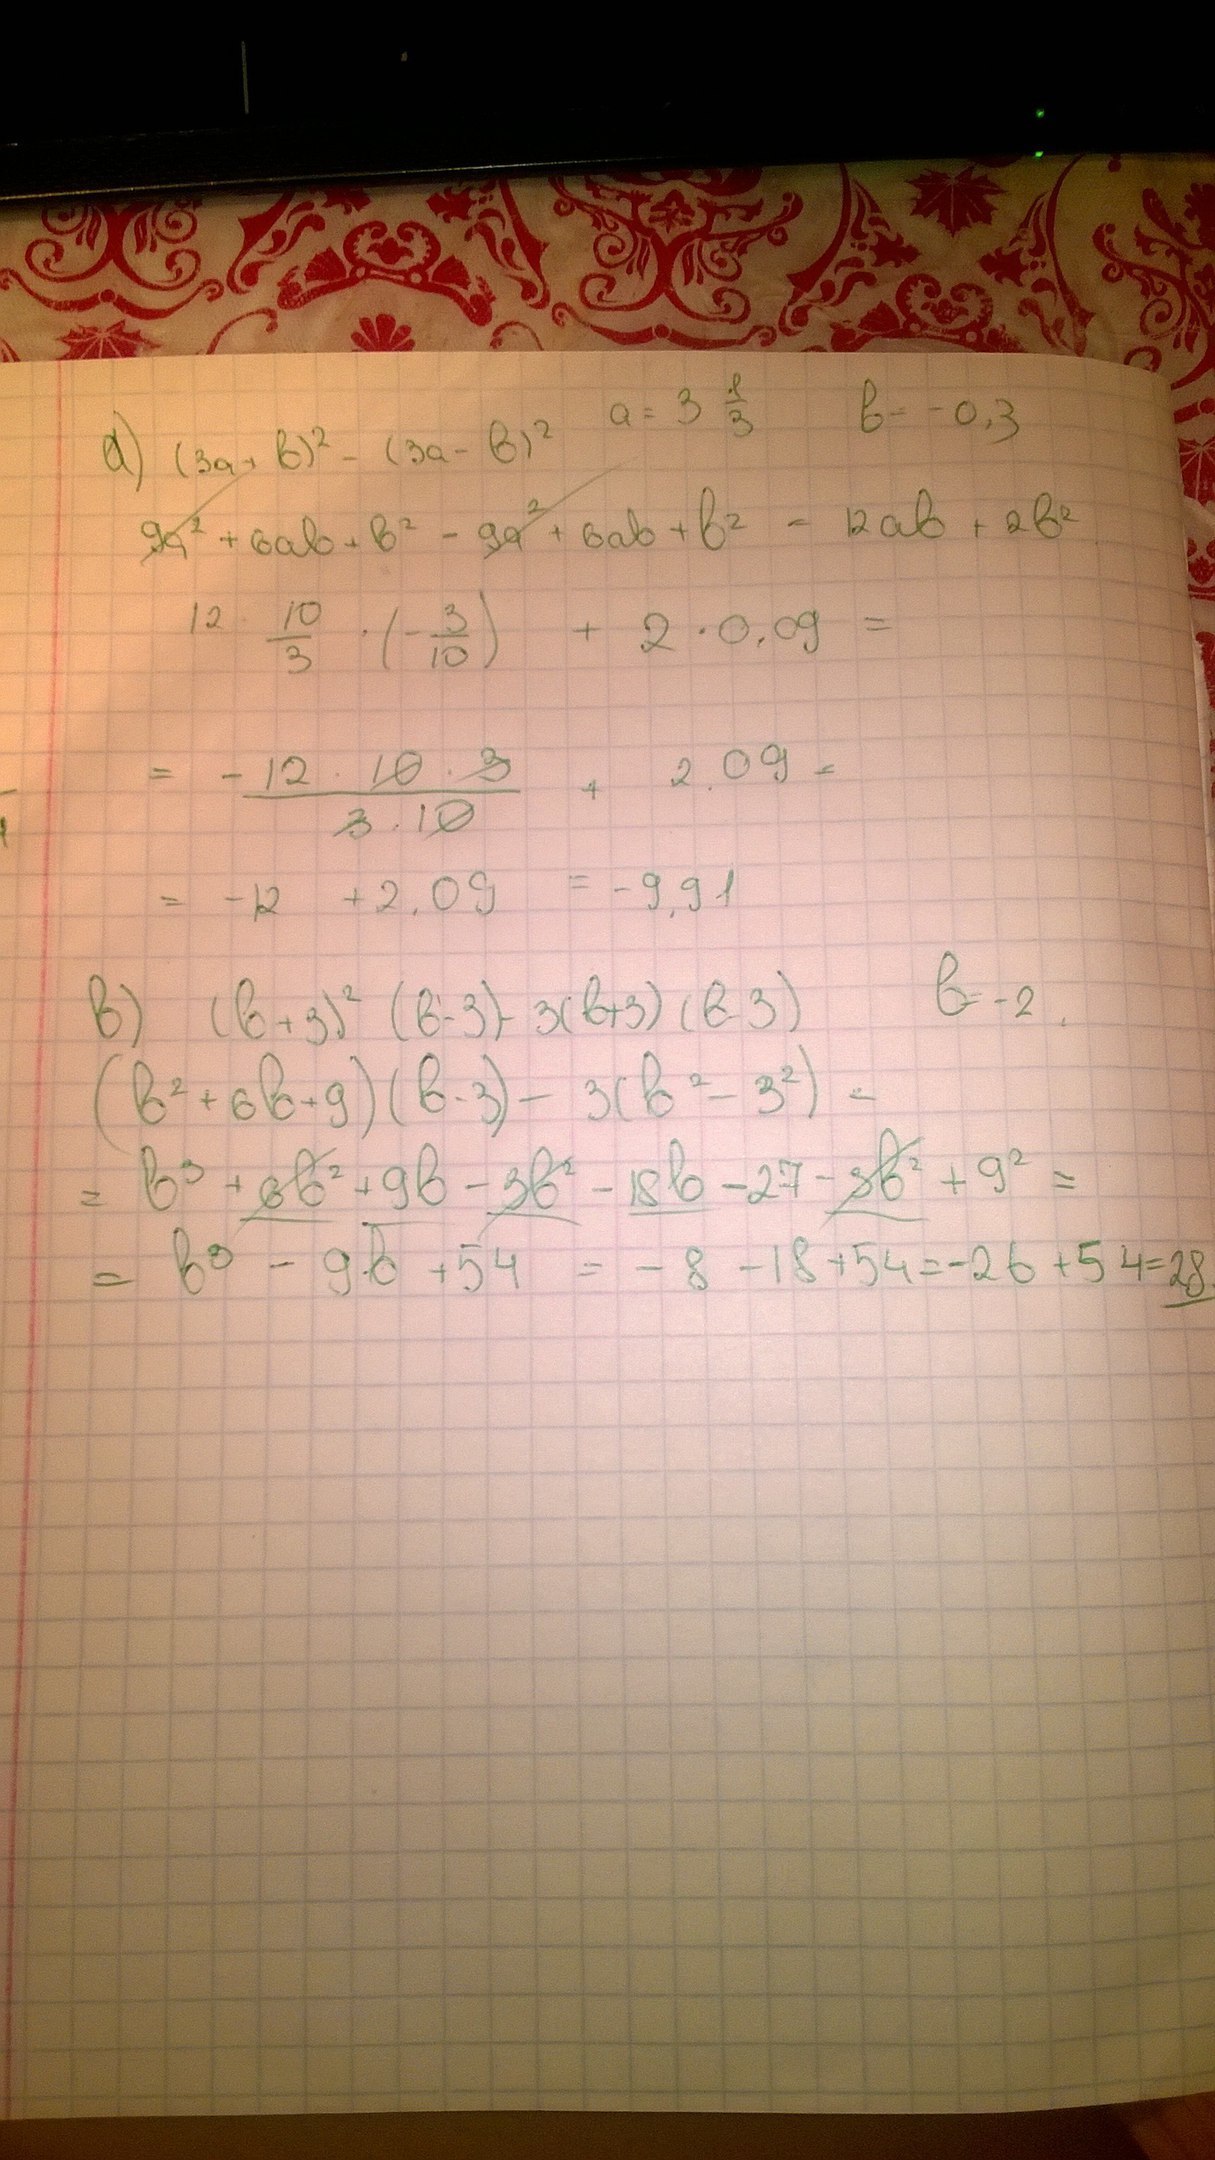 а) (3a + b)² - (3a - b)² a = 3 1/3 b = -0,3
9a² + 6ab + b² - 9a² + 6ab + b² = 12ab + 2b²
12 · 10/3 · (-3/10) + 2 · 0,09 =
= - 12 · 10 · 3 / 3 · 10 + 2.09 =
= -12 + 2,09 = -9,91
в) (b + 3)² (b - 3) - 3(b+3) (b - 3) b = -2
(b² + 6b + 9)(b - 3) - 3(b² - 3²) =
= b³ + 6b² + 9b - 3b² - 18b - 27 - 3b² + 9² =
= b³ - 9b + 54 = -8 - 18 + 54 = -26 + 54 = 28